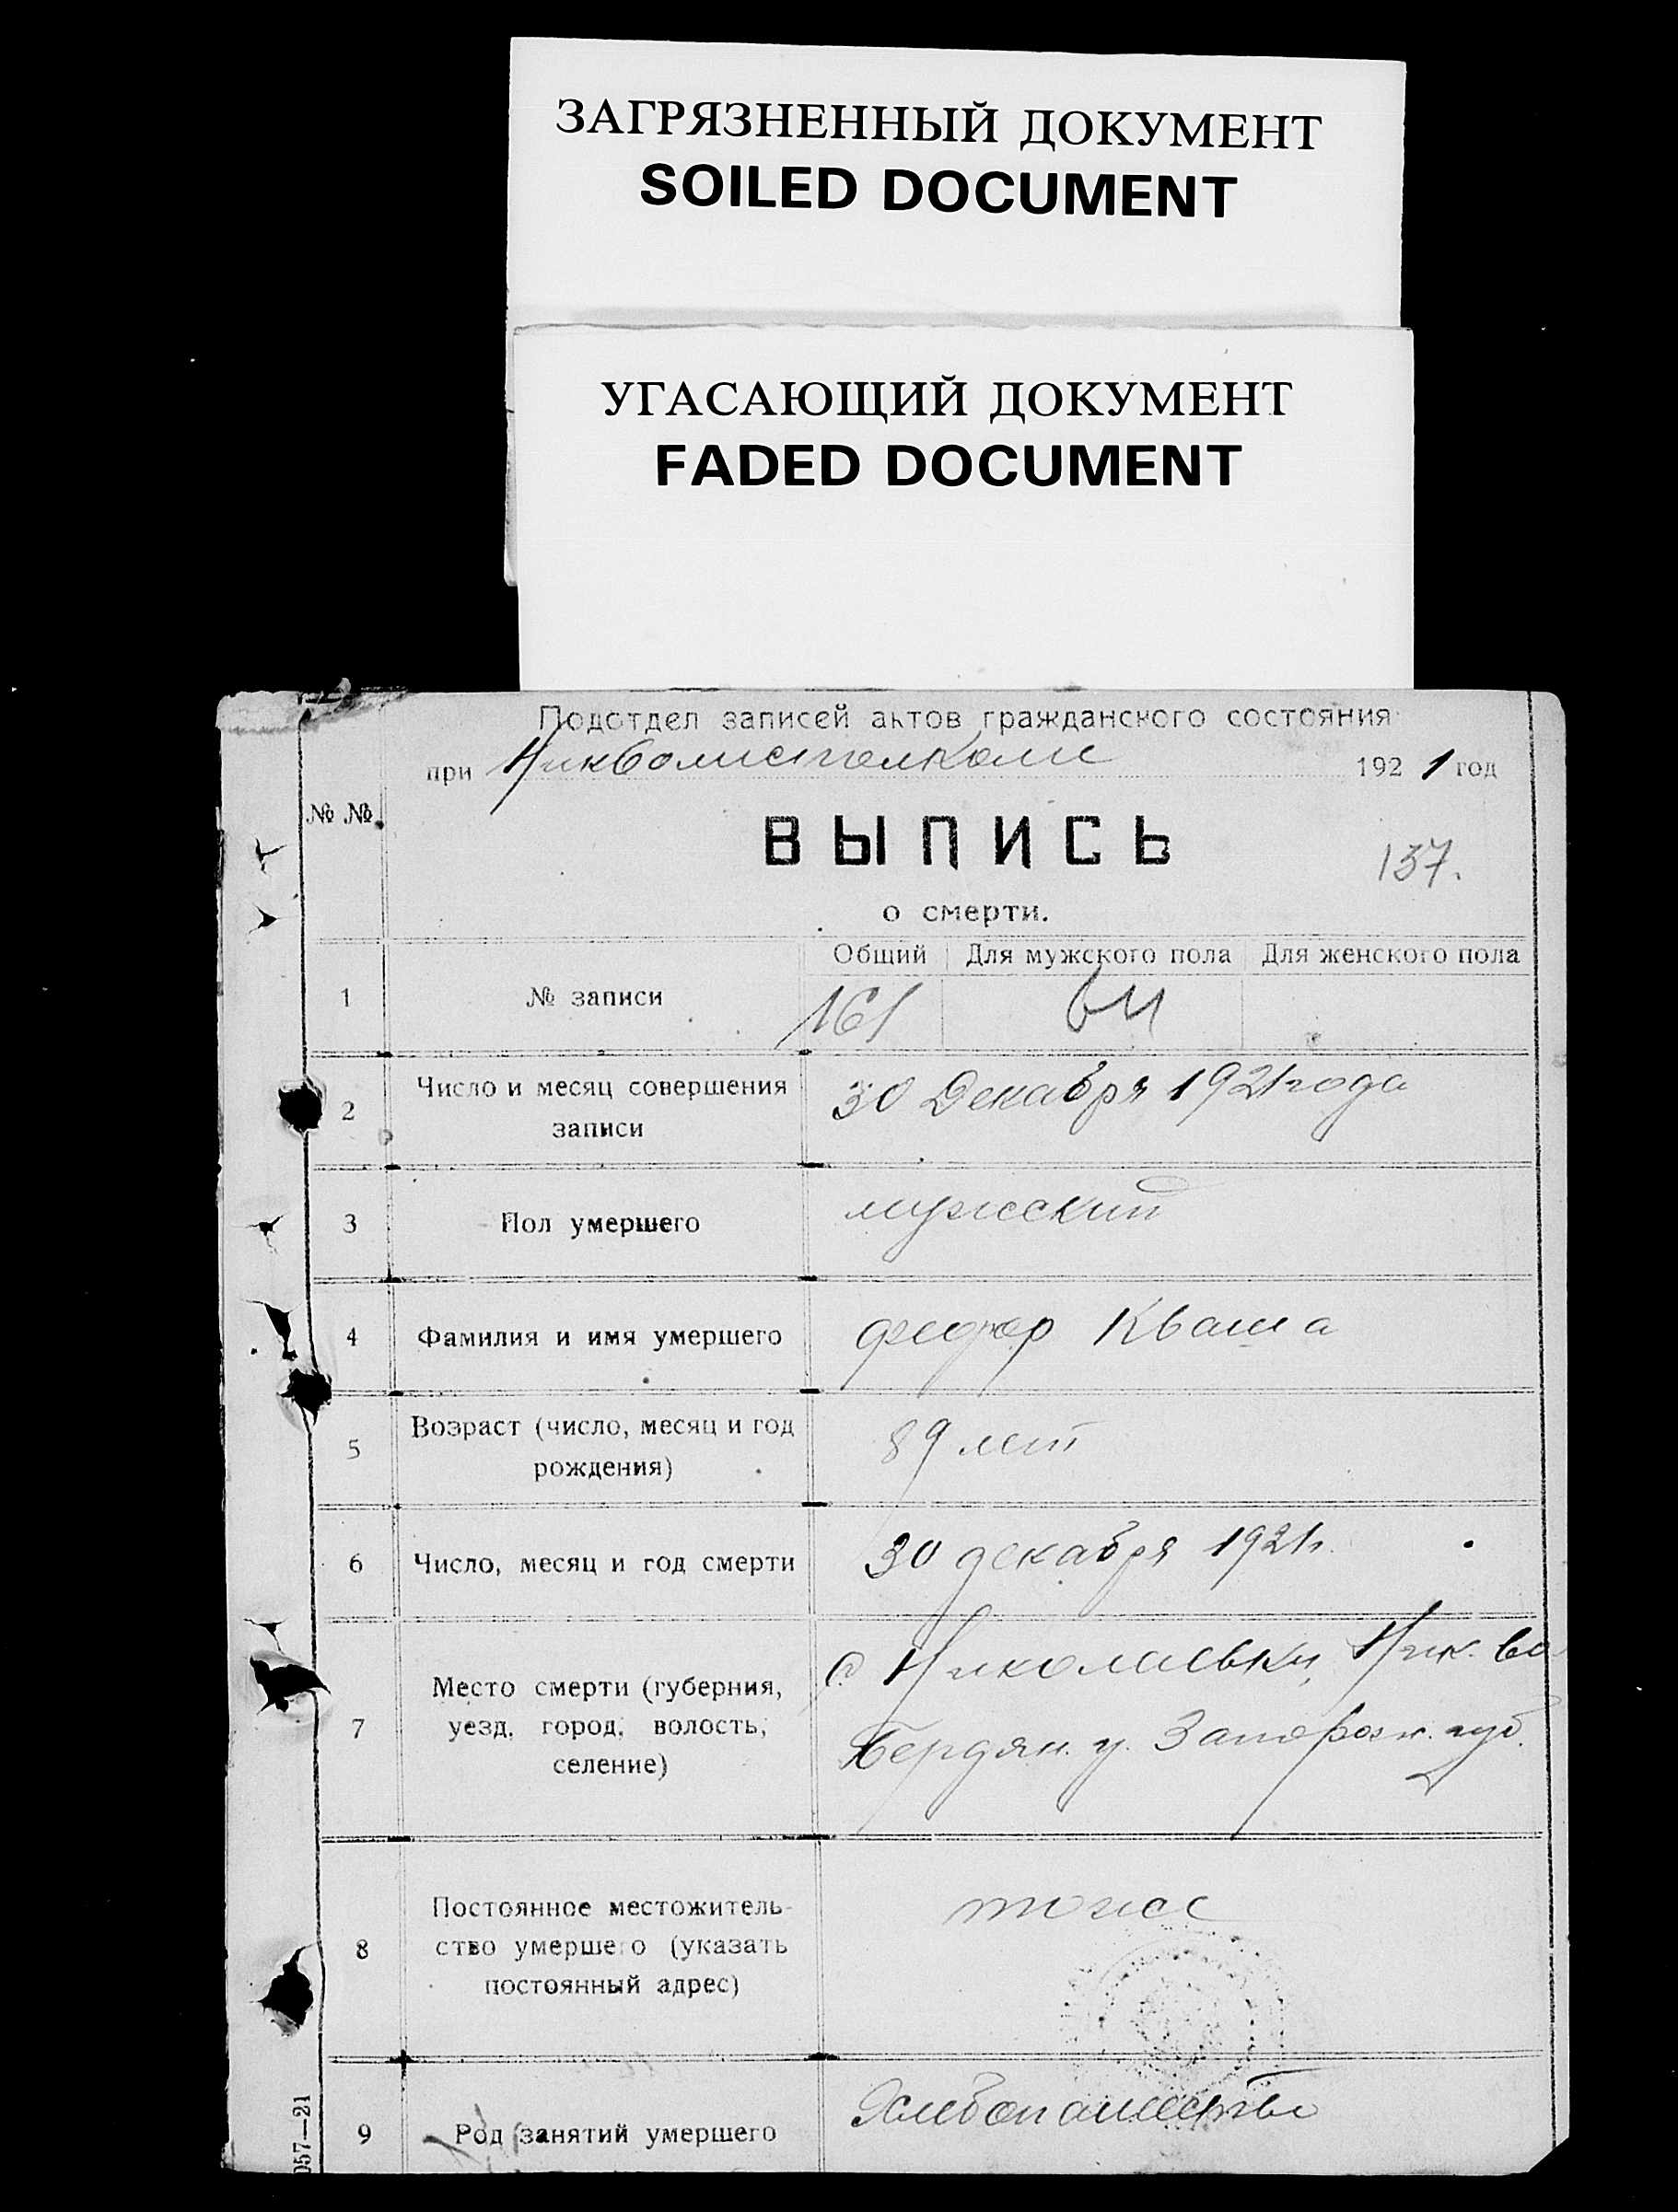 ЗАГРЯЗНЕННЫЙ ДОКУМЕНТ
SOILED DOCUMENT
УГАСАЮЩИЙ ДОКУМЕНТ
FADED DOCUMENT
Подотдел записей актов гражданского состояния
при Никволисполкоме 1921 год
№ №
ВЫПИСЬ
137.
о смерти.
Общий Для мужского пола Для женского пола
1 № записи 161
2 Число и месяц совершения 30 Декабря 1921 года
записи
3 Пол умершего мужский
4 Фамилия и имя умершего Федор Кваша
5 Возраст (число, месяц и год 89 лет
рождения)
6 Число, месяц и год смерти 30 декабря 1921 г.
Место смерти (губерния, С Николаевки, Ник. во
7 уезд, город, волость, Бердян. у. Запорож. губ.
селение)
Постоянное местожитель-
8 ство умершего (указать тоже
постоянный адрес)
9 Род занятий умершего Хлебопашество
057—21